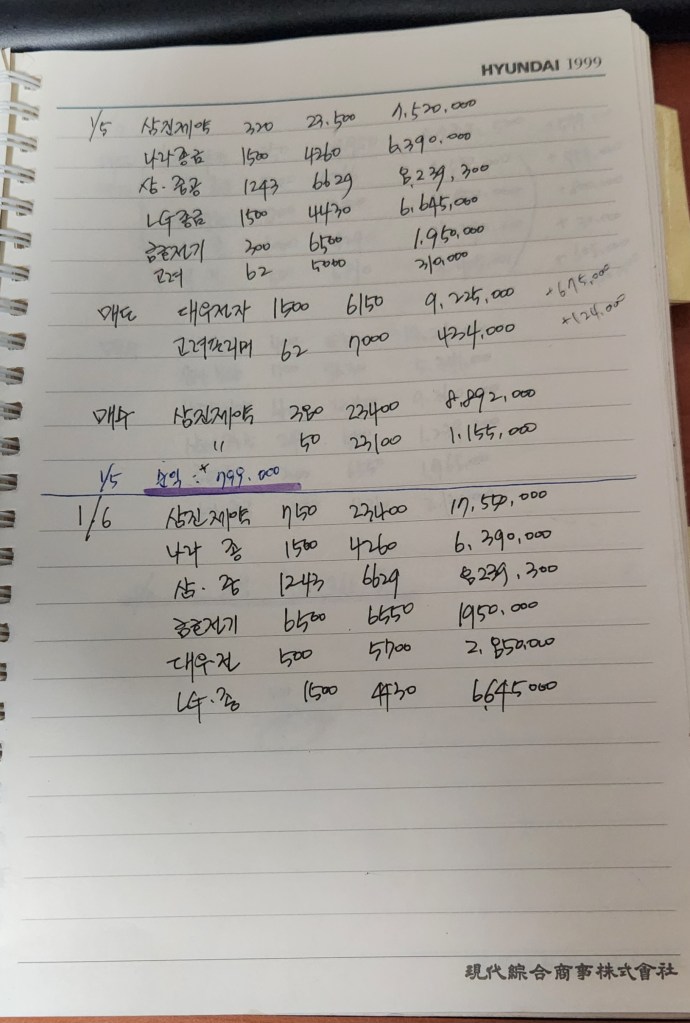 HYUNDAI 1999
1/5 삼진제약 320 23.500 7.520.000
나라종금 1500 4260 6.390.000
삼.종금 1243 6629 8.239.300
LG종금 1500 4430 6.645,000
금호전기 300 6500 1.950.000
고려 62 5000 310.000
매도 대우전자 1500 6150 9.225,000 +675,000
고려프리머 62 7000 434.000 +124.000
매수 삼진제약 380 23400 8.892.000
〃 50 23100 1.155,000
1/5 순익 :+ 799.000
1/6 삼진제약 750 23400 17,550,000
나라 종 1500 4260 6.390.000
삼.종 1243 6629 8239.300
금호전기 6500 6550 1950.000
대우전 500 5700 2.850.000
LG.종 1500 4430 6645000
現代綜合商事株式會社